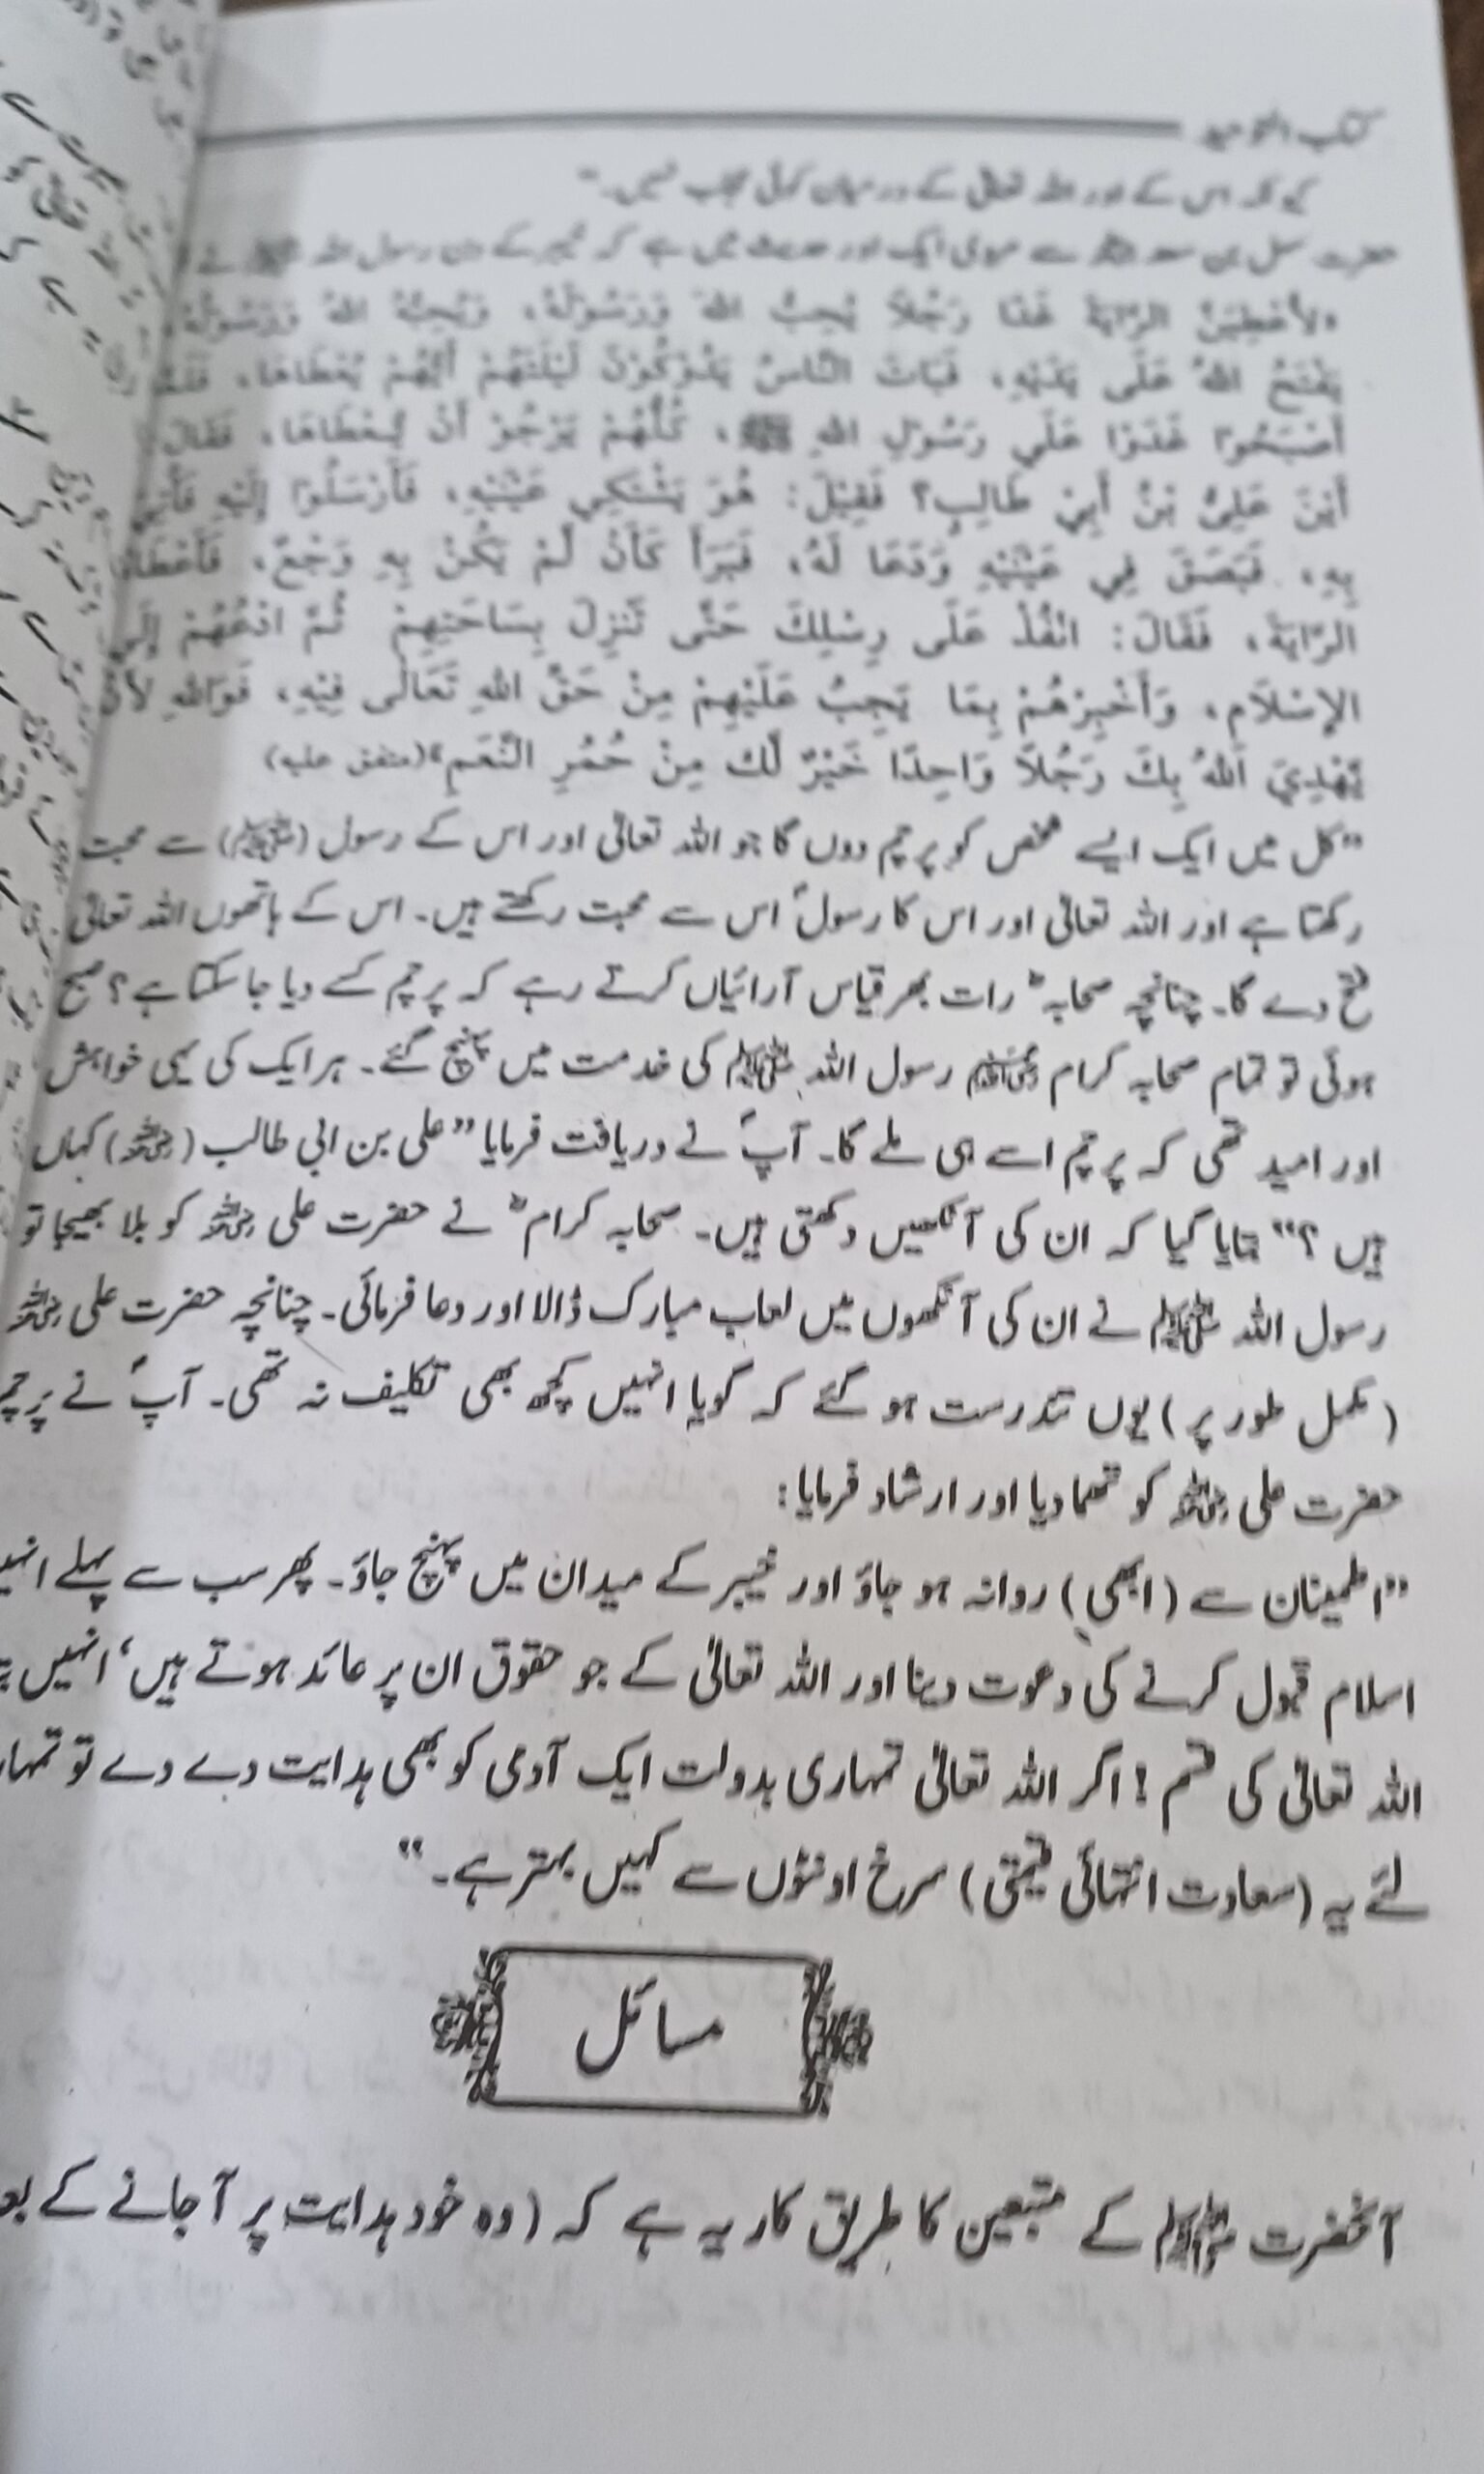 کتاب التوحید
کیونکہ اس کے اور اللہ تعالیٰ کے درمیان کوئی حجاب نہیں۔"
حضرت سہل بن سعد رضی اللہ عنہ سے مروی ایک اور حدیث میں ہے کہ خیبر کے دن رسول اللہ ﷺ نے
«لأُعْطِيَنَّ الرَّايَةَ غَدًا رَجُلاً يُحِبُّ اللهَ وَرَسُوْلَهُ، وَيُحِبُّهُ اللهُ وَرَسُوْلُهُ،
يَفْتَحُ اللهُ عَلَى يَدَيْهِ، فَبَاتَ النَّاسُ يَدُوْكُوْنَ لَيْلَتَهُمْ أَيُّهُمْ يُعْطَاهَا، فَلَمَّا
أَصْبَحُوا غَدَوْا عَلَى رَسُوْلِ اللهِ ﷺ، كُلُّهُمْ يَرْجُوْ أَنْ يُعْطَاهَا، فَقَالَ
أَيْنَ عَلِيُّ بْنُ أَبِيْ طَالِبٍ؟ فَقِيْلَ: هُوَ يَشْتَكِي عَيْنَيْهِ، فَأَرْسَلُوا إِلَيْهِ فَأُتِيَ
بِهِ، فَبَصَقَ فِي عَيْنَيْهِ وَدَعَا لَهُ، فَبَرَأَ كَأَنْ لَمْ يَكُنْ بِهِ وَجَعٌ، فَأَعْطَاهُ
الرَّايَةَ، فَقَالَ: انْفُذْ عَلَى رِسْلِكَ حَتَّى تَنْزِلَ بِسَاحَتِهِمْ ثُمَّ ادْعُهُمْ إِلَى
الإِسْلَامِ، وَأَخْبِرْهُمْ بِمَا يَجِبُ عَلَيْهِمْ مِنْ حَقِّ اللهِ تَعَالَى فِيْهِ، فَوَاللهِ لأَنْ
يَّهْدِيَ اللهُ بِكَ رَجُلاً وَاحِدًا خَيْرٌ لَّكَ مِنْ حُمُرِ النَّعَمِ»(متفق عليه)
"کل میں ایک ایسے شخص کو پرچم دوں گا جو اللہ تعالیٰ اور اس کے رسول (ﷺ) سے محبت
رکھتا ہے اور اللہ تعالیٰ اور اس کا رسولؐ اس سے محبت رکھتے ہیں۔ اس کے ہاتھوں اللہ تعالیٰ
فتح دے گا۔ چنانچہ صحابہؓ رات بھر قیاس آرائیاں کرتے رہے کہ پرچم کسے دیا جا سکتا ہے؟ صبح
ہوئی تو تمام صحابہ کرام رضی اللہ عنہم رسول اللہ ﷺ کی خدمت میں پہنچ گئے۔ ہر ایک کی یہی خواہش
اور امید تھی کہ پرچم اسے ہی ملے گا۔ آپؐ نے دریافت فرمایا "علی بن ابی طالب (رضی اللہ عنہ) کہاں
ہیں؟" بتایا گیا کہ ان کی آنکھیں دکھتی ہیں۔ صحابہ کرامؓ نے حضرت علی رضی اللہ عنہ کو بلا بھیجا تو
رسول اللہ ﷺ نے ان کی آنکھوں میں لعاب مبارک ڈالا اور دعا فرمائی۔ چنانچہ حضرت علی رضی اللہ عنہ
(مکمل طور پر) یوں تندرست ہو گئے کہ گویا انہیں کچھ بھی تکلیف نہ تھی۔ آپؐ نے پرچم
حضرت علی رضی اللہ عنہ کو تھما دیا اور ارشاد فرمایا:
"اطمینان سے (ابھی) روانہ ہو جاؤ اور خیبر کے میدان میں پہنچ جاؤ۔ پھر سب سے پہلے
اسلام قبول کرنے کی دعوت دینا اور اللہ تعالیٰ کے جو حقوق ان پر عائد ہوتے ہیں' انہیں
اللہ تعالیٰ کی قسم! اگر اللہ تعالیٰ تمہاری بدولت ایک آدمی کو بھی ہدایت دے دے تو
لئے یہ (سعادت انتہائی قیمتی) سرخ اونٹوں سے کہیں بہتر ہے۔"
مسائل
آنحضرت ﷺ کے متبعین کا طریق کار یہ ہے کہ (وہ خود ہدایت پر آ جانے کے